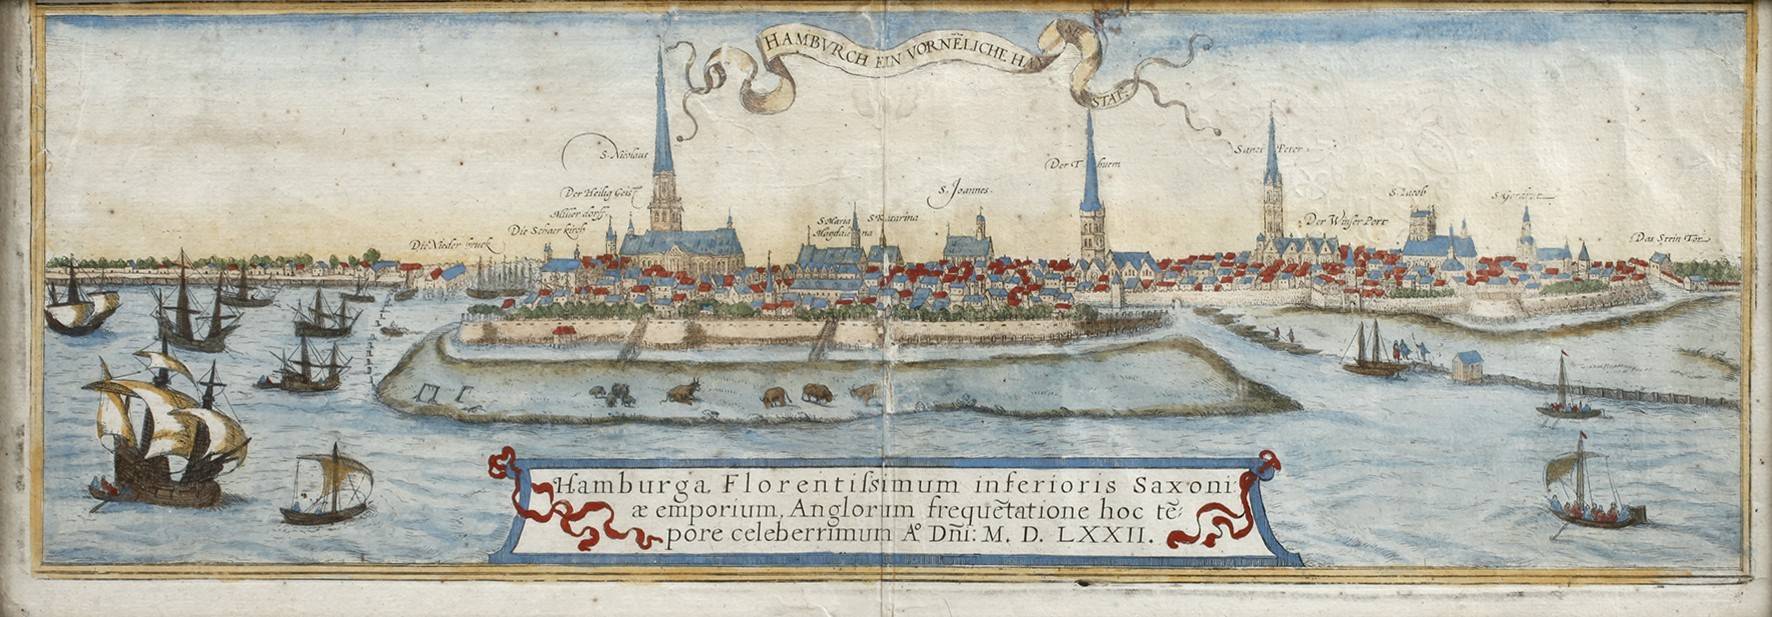 HAMBVRCH EIN VORNĒLICHE HANSE
STAT:
S. Nicolaus
Der Heilig Geist
Müler dorff.
Die Schaer kirch
Die Nieder bruck
S. Maria
Magdalena
S. Katarina
S. Joannes.
Der Thuern
Sanct Peter
Der Winser Port
S. Jacob
S. Gerdrut
Das Stein Tor
Hamburga, Florentißimum inferioris Saxoni
æ emporium, Anglorum frequētatione hoc tē;
pore celeberrimum Aº Dñi: M. D. LXXII.